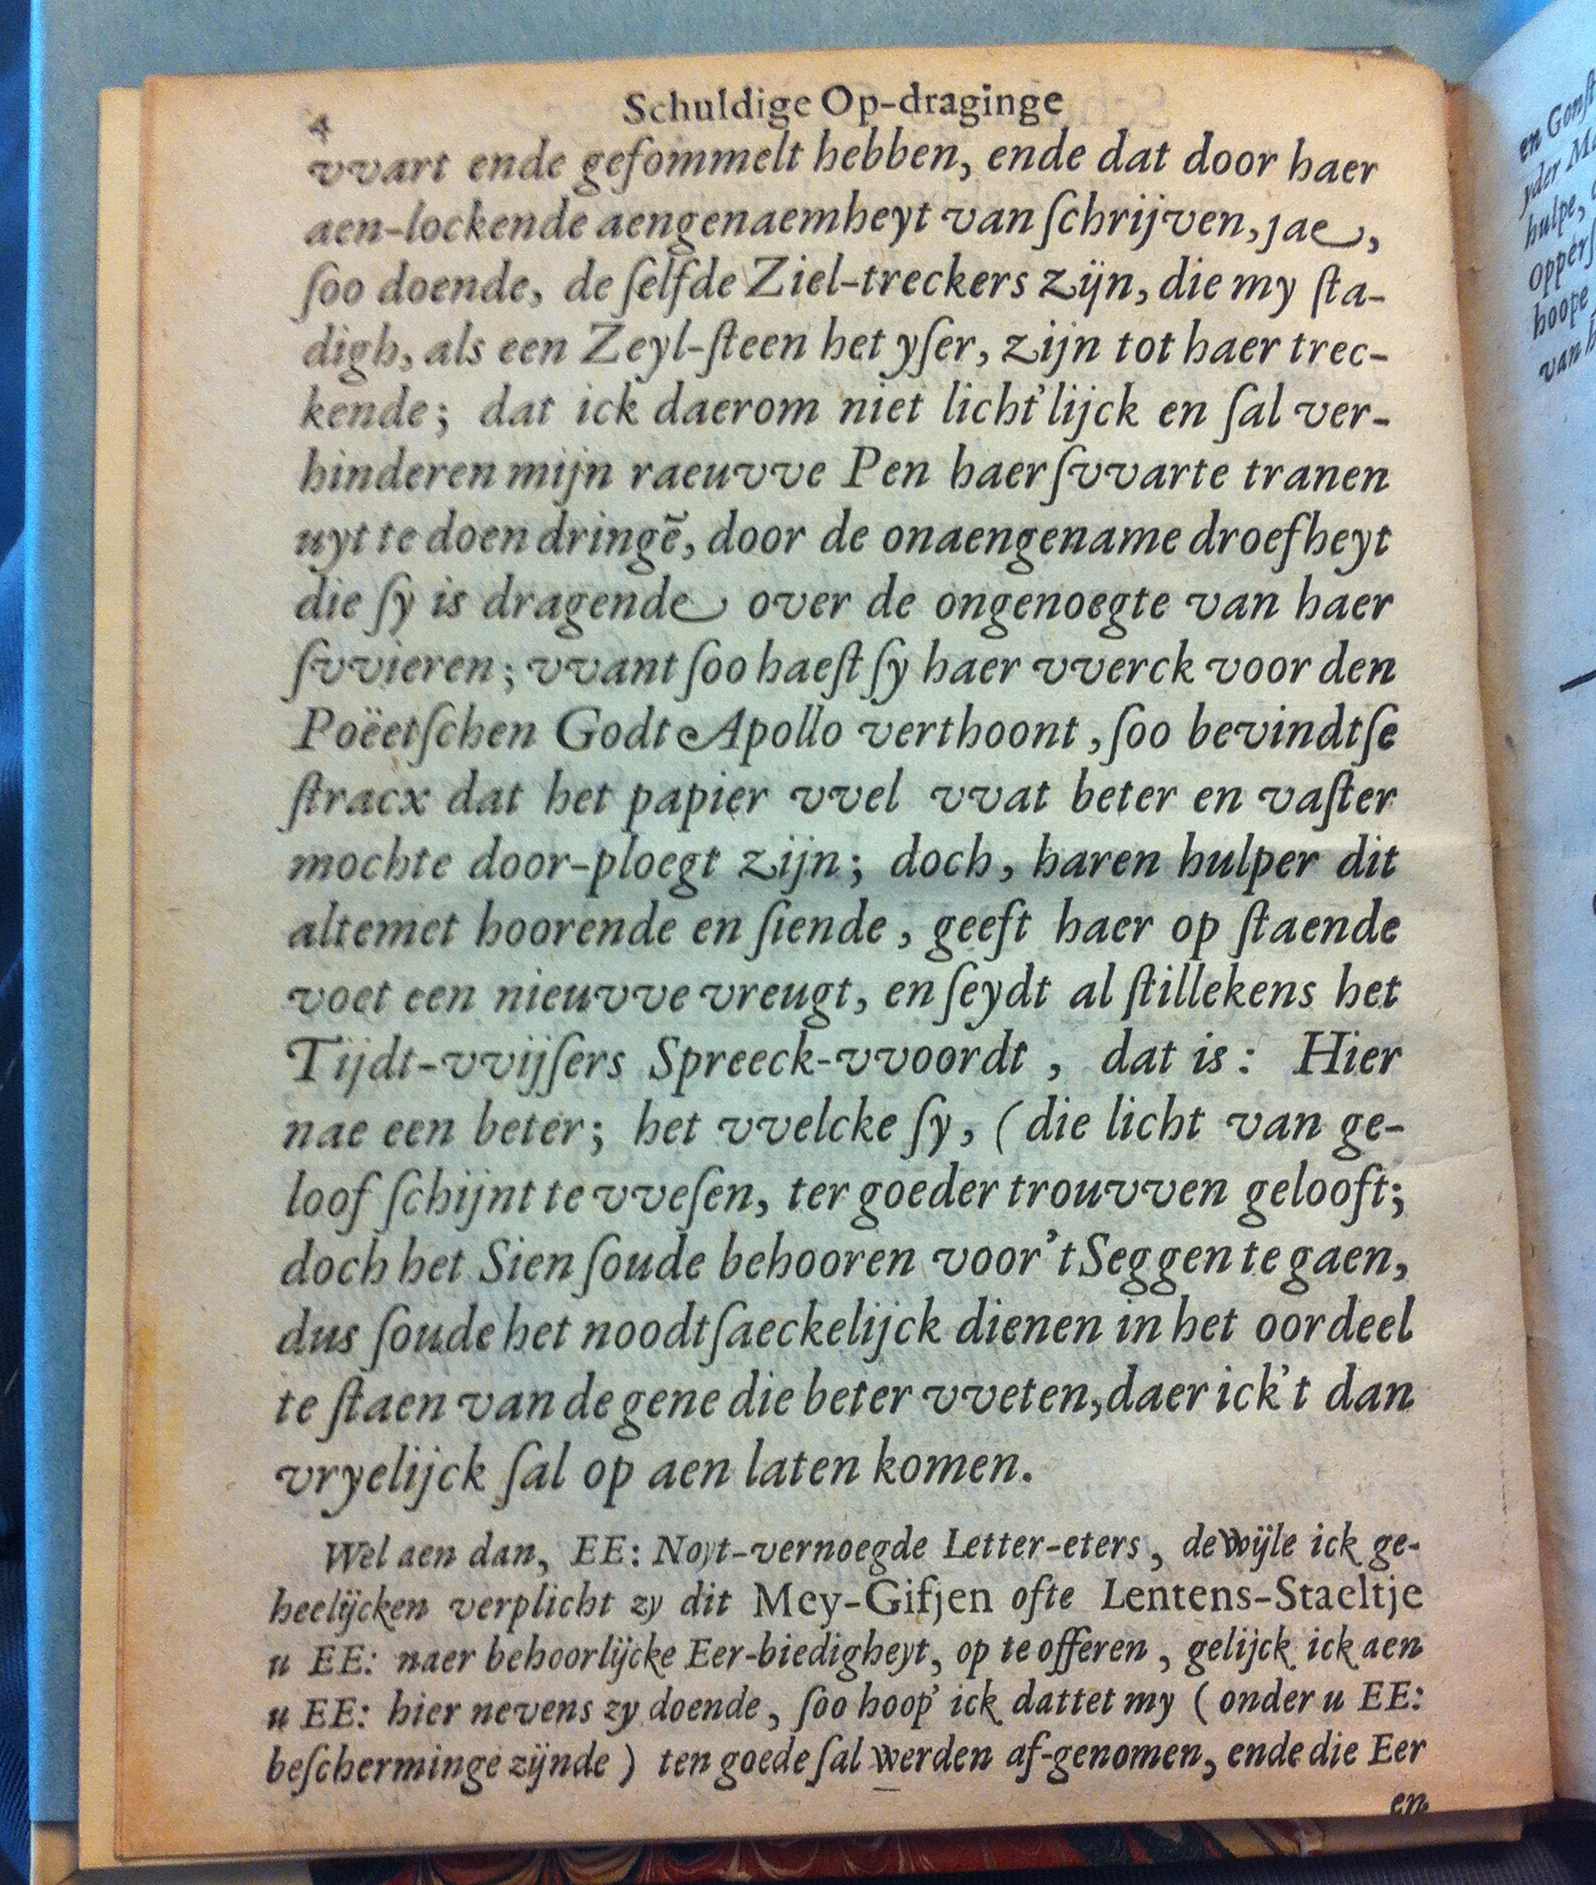 4
Schuldige Op-draginge
vvart ende geſommelt hebben, ende dat door haer
aen-lockende aengenaemheyt van ſchrijven, jae,
ſoo doende, de ſelfde Ziel-treckers zijn, die my ſta-
digh, als een Zeyl-ſteen het yſer, zijn tot haer trec-
kende; dat ick daerom niet licht'lijck en ſal ver-
hinderen mijn raeuvve Pen haer ſvvarte tranen
uyt te doen dringē, door de onaengename droefheyt
die ſy is dragende over de ongenoegte van haer
ſvvieren; vvant ſoo haeſt ſy haer vverck voor den
Poëetſchen Godt Apollo verthoont, ſoo bevindtſe
ſtracx dat het papier vvel vvat beter en vaſter
mochte door-ploegt zijn; doch, haren hulper dit
altemet hoorende en ſiende, geeft haer op ſtaende
voet een nieuvve vreugt, en ſeydt al ſtillekens het
Tijdt-vvijſers Spreeck-vvoordt, dat is: Hier
nae een beter; het vvelcke ſy, (die licht van ge-
loof ſchijnt te vveſen, ter goeder trouvven gelooft;
doch het Sien ſoude behooren voor 't Seggen te gaen,
dus ſoude het noodtſaeckelijck dienen in het oordeel
te ſtaen van de gene die beter vveten, daer ick't dan
vryelijck ſal op aen laten komen.
Wel aen dan, EE: Noyt-vernoegde Letter-eters, dewijle ick ge-
heelijcken verplicht zy dit Mey-Gifjen ofte Lentens-Staeltje
u EE: naer behoorlijcke Eer-biedigheyt, op te offeren, gelijck ick aen
u EE: hier nevens zy doende, ſoo hoop' ick dattet my (onder u EE:
beſcherminge zijnde) ten goede ſal werden af-genomen, ende die Eer
en
en Gonſt
yder
hulpe,
hoope